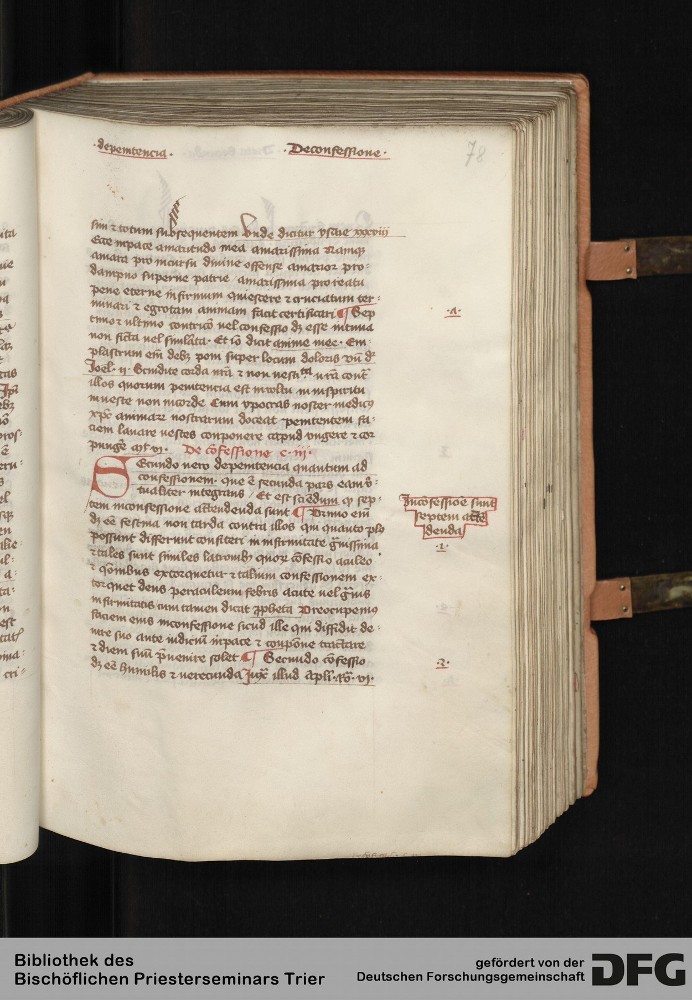 ·de penitencia·
·De confessione·
78
sim et totum subsequentem Unde dicitur ysaie xxxviii
Ecce in pace amaritudo mea amarissima Namque
amara pro incursu divine offense amarior pro
dampno superne patrie amarissima pro reatu
pene eterne infirmum quiescere et cruciatum ter-
minari et egrotam animam facit certificari ¶ Sep
timo et ultimo contricio vel confessio debet esse intima
non ficta vel simulata. Et io dicit anime mee. Em
plastrum em debet poni super locum doloris
Joel·ii· Scindite corda vestra et non vestimenta vestra contra
illos quorum penitencia est in voltu in inspiratu
in veste non in corde Cum ypocras noster medicus
xpc animarum nostrarum doceat penitentem fa-
ciem lauare vestes componere caput vngere et cor
pungere mt vi· De confessione c·iii·
Secundo vero de penitencia quantum ad
confessionem· que est secunda pars eam vir
tualiter integrans / Et est sciendum quod sep-
tem in confessione attendenda sunt ¶ Primo em
debet esse festina non tarda contra illos qui quanto plus
possunt differunt confiteri in infirmitate gravissima
et tales sunt similes latronibus quorum confessio aculeo
et comibus extorquetur et talium confessionem ex-
torquet deus per aculeum febris acute vel gravius
infirmitatis cum tamen dicat propheta Preocupemus
faciem eius in confessione sicud ille qui diffidit de
iure suo ante iudicium in pace et compone tractare
et diem suum prevenire solet ¶ Secundo confessio
debet esse humilis et verecunda Juxta illud Apli Ro· vi·
·A·
In confessione sunt
septem atten
denda
·1·
·2·
Bibliothek des
Bischöflichen Priesterseminars Trier
gefördert von der
Deutschen Forschungsgemeinschaft
DFG